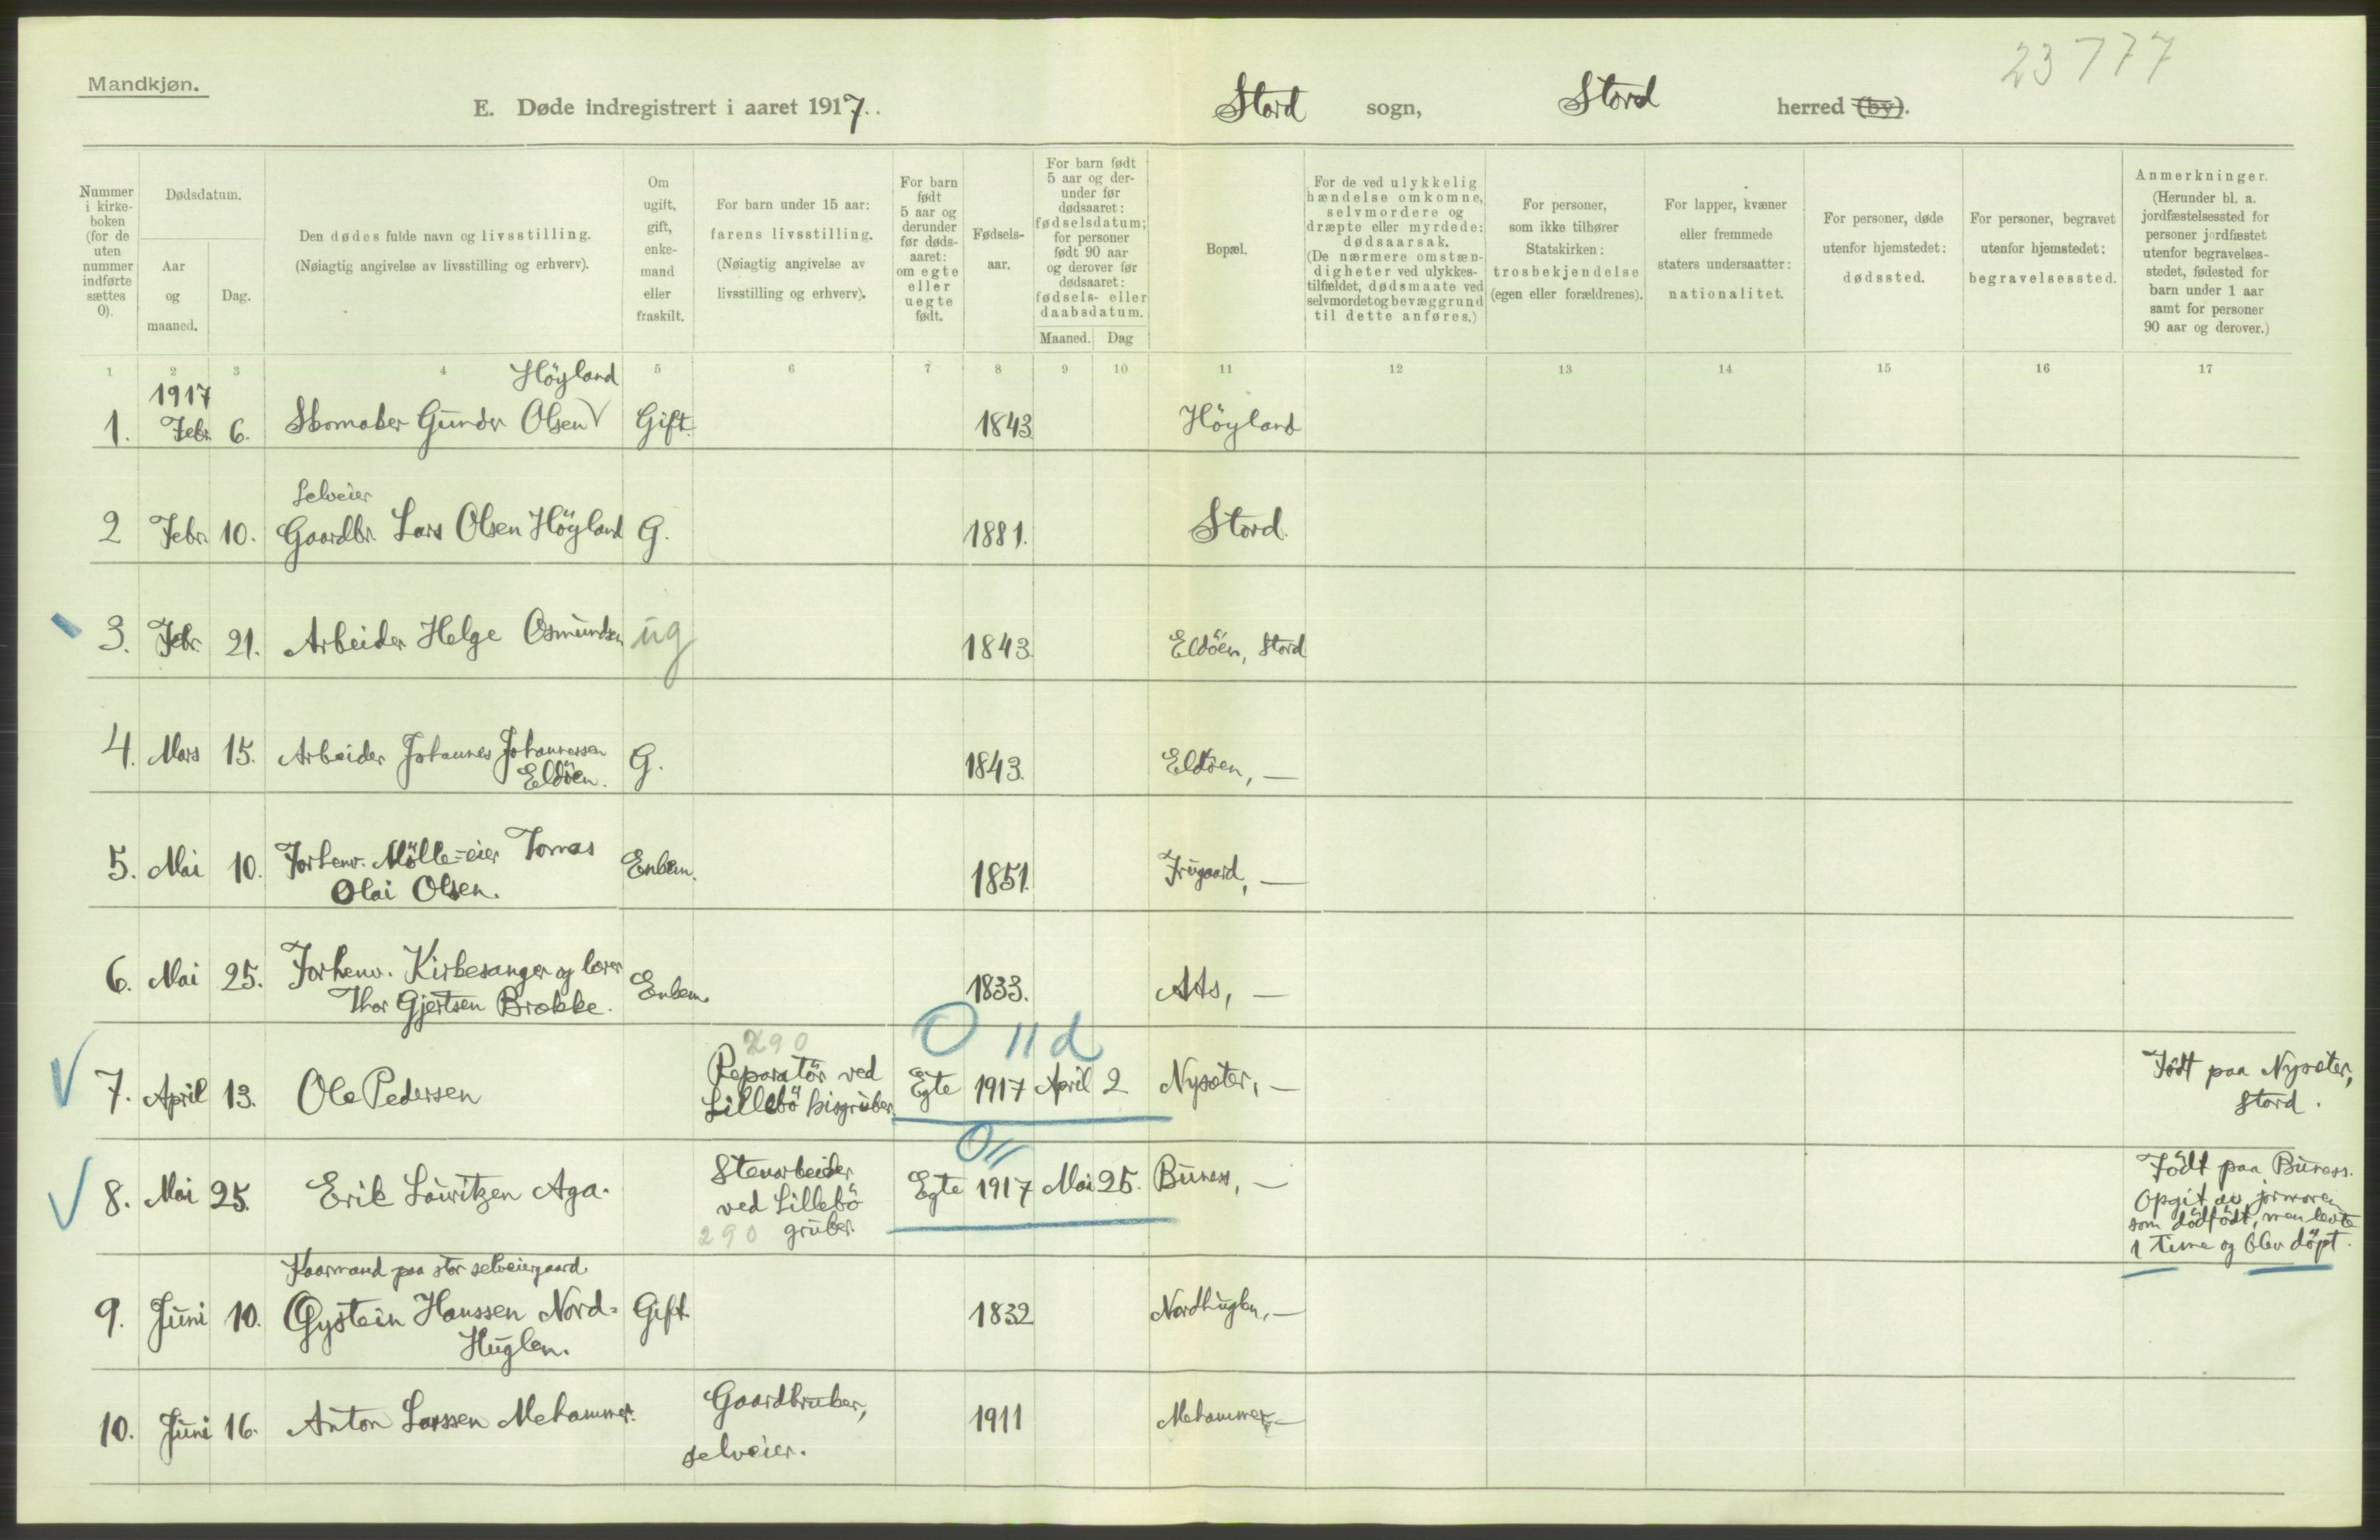 23 777
Mandkjøn.
E. Døde indregistrert i aaret 1917.. Stord sogn, Stord herred (by).
Nummer i kirke-boken (for de uten nummer indførte sættes 0).
Dødsdatum.
Aar og maaned.
Dag.
Den dødes fulde navn og livsstilling.
(Nøiagtig angivelse av livsstilling og erhverv).
Om ugift, gift, enke-mand eller fraskilt.
For barn under 15 aar: farens livsstilling.
(Nøiagtig angivelse av livsstilling og erhverv).
For barn født 5 aar og derunder før døds-aaret: om egte eller uegte født.
Fødsels-aar.
For barn født 5 aar og der-under før dødsaaret: fødselsdatum; for personer født 90 aar og derover før dødsaaret: fødsels- eller daabsdatum.
Maaned. Dag
Bopæl.
For de ved ulykkelig hændelse omkomne, selvmordere og dræpte eller myrdede: dødsaarsak.
(De nærmere omstæn-digheter ved ulykkes-tilfældet, dødsmaate ved selvmordet og bevæggrund til dette anføres.)
For personer, som ikke tilhører Statskirken: trosbekjendelse (egen eller forældrenes).
For lapper, kvæner eller fremmede staters undersaatter: nationalitet.
For personer, døde utenfor hjemstedet: dødssted.
For personer, begravet utenfor hjemstedet: begravelsessted.
Anmerkninger.
(Herunder bl. a. jordfæstelsessted for personer jordfæstet utenfor begravelses-stedet, fødested for barn under 1 aar samt for personer 90 aar og derover.)
1 2 3 4 5 6 7 8 9 10 11 12 13 14 15 16 17
1917 Höyland
1. Febr. 6. Skomaker Gunder Olsen Gift. 1843 Höyland
Selveier
2 Febr. 10. Gaardbr. Lars Olsen Höyland G. 1881. Stord.
3. Febr. 21. Arbeider Helge Osmundsen ug 1843. Eldöen, Stord
4. Mars 15. Arbeider Johannes Johannessen G. 1843. Eldöen, —
Eldöen.
5. Mai 10. Forhenv. Mölle-eier Tomas Enkem. 1851. Frugaard, —
Olai Olsen.
6. Mai 25. Forhenv. Kirkesanger og lærer Enkem. 1833. Ads, —
Thor Gjertsen Brække.
290 0 11 d
7. April 13. Ole Pedersen Reparatör ved Egte 1917 April 2 Nysæter, — Född paa Nysæter,
Lillebö kisgruber. Stord.
0 11
8. Mai 25. Erik Lauritzen Aga. Stenarbeider Egte 1917 Mai 25. Buness, — Född paa Buness.
ved Lillebö Opgit av jormoren
290 gruber. som dödfödt, men levte
1 time og blev döpt.
Kaarmand paa stor selveiergaard.
9. Juni 10. Øystein Hanssen Nord- Gift 1832 Nordhuglen, —
Huglen.
10. Juni 16. Anton Larssen Mehammer. Gaardbruker, 1911 Mehammer, —
selveier.